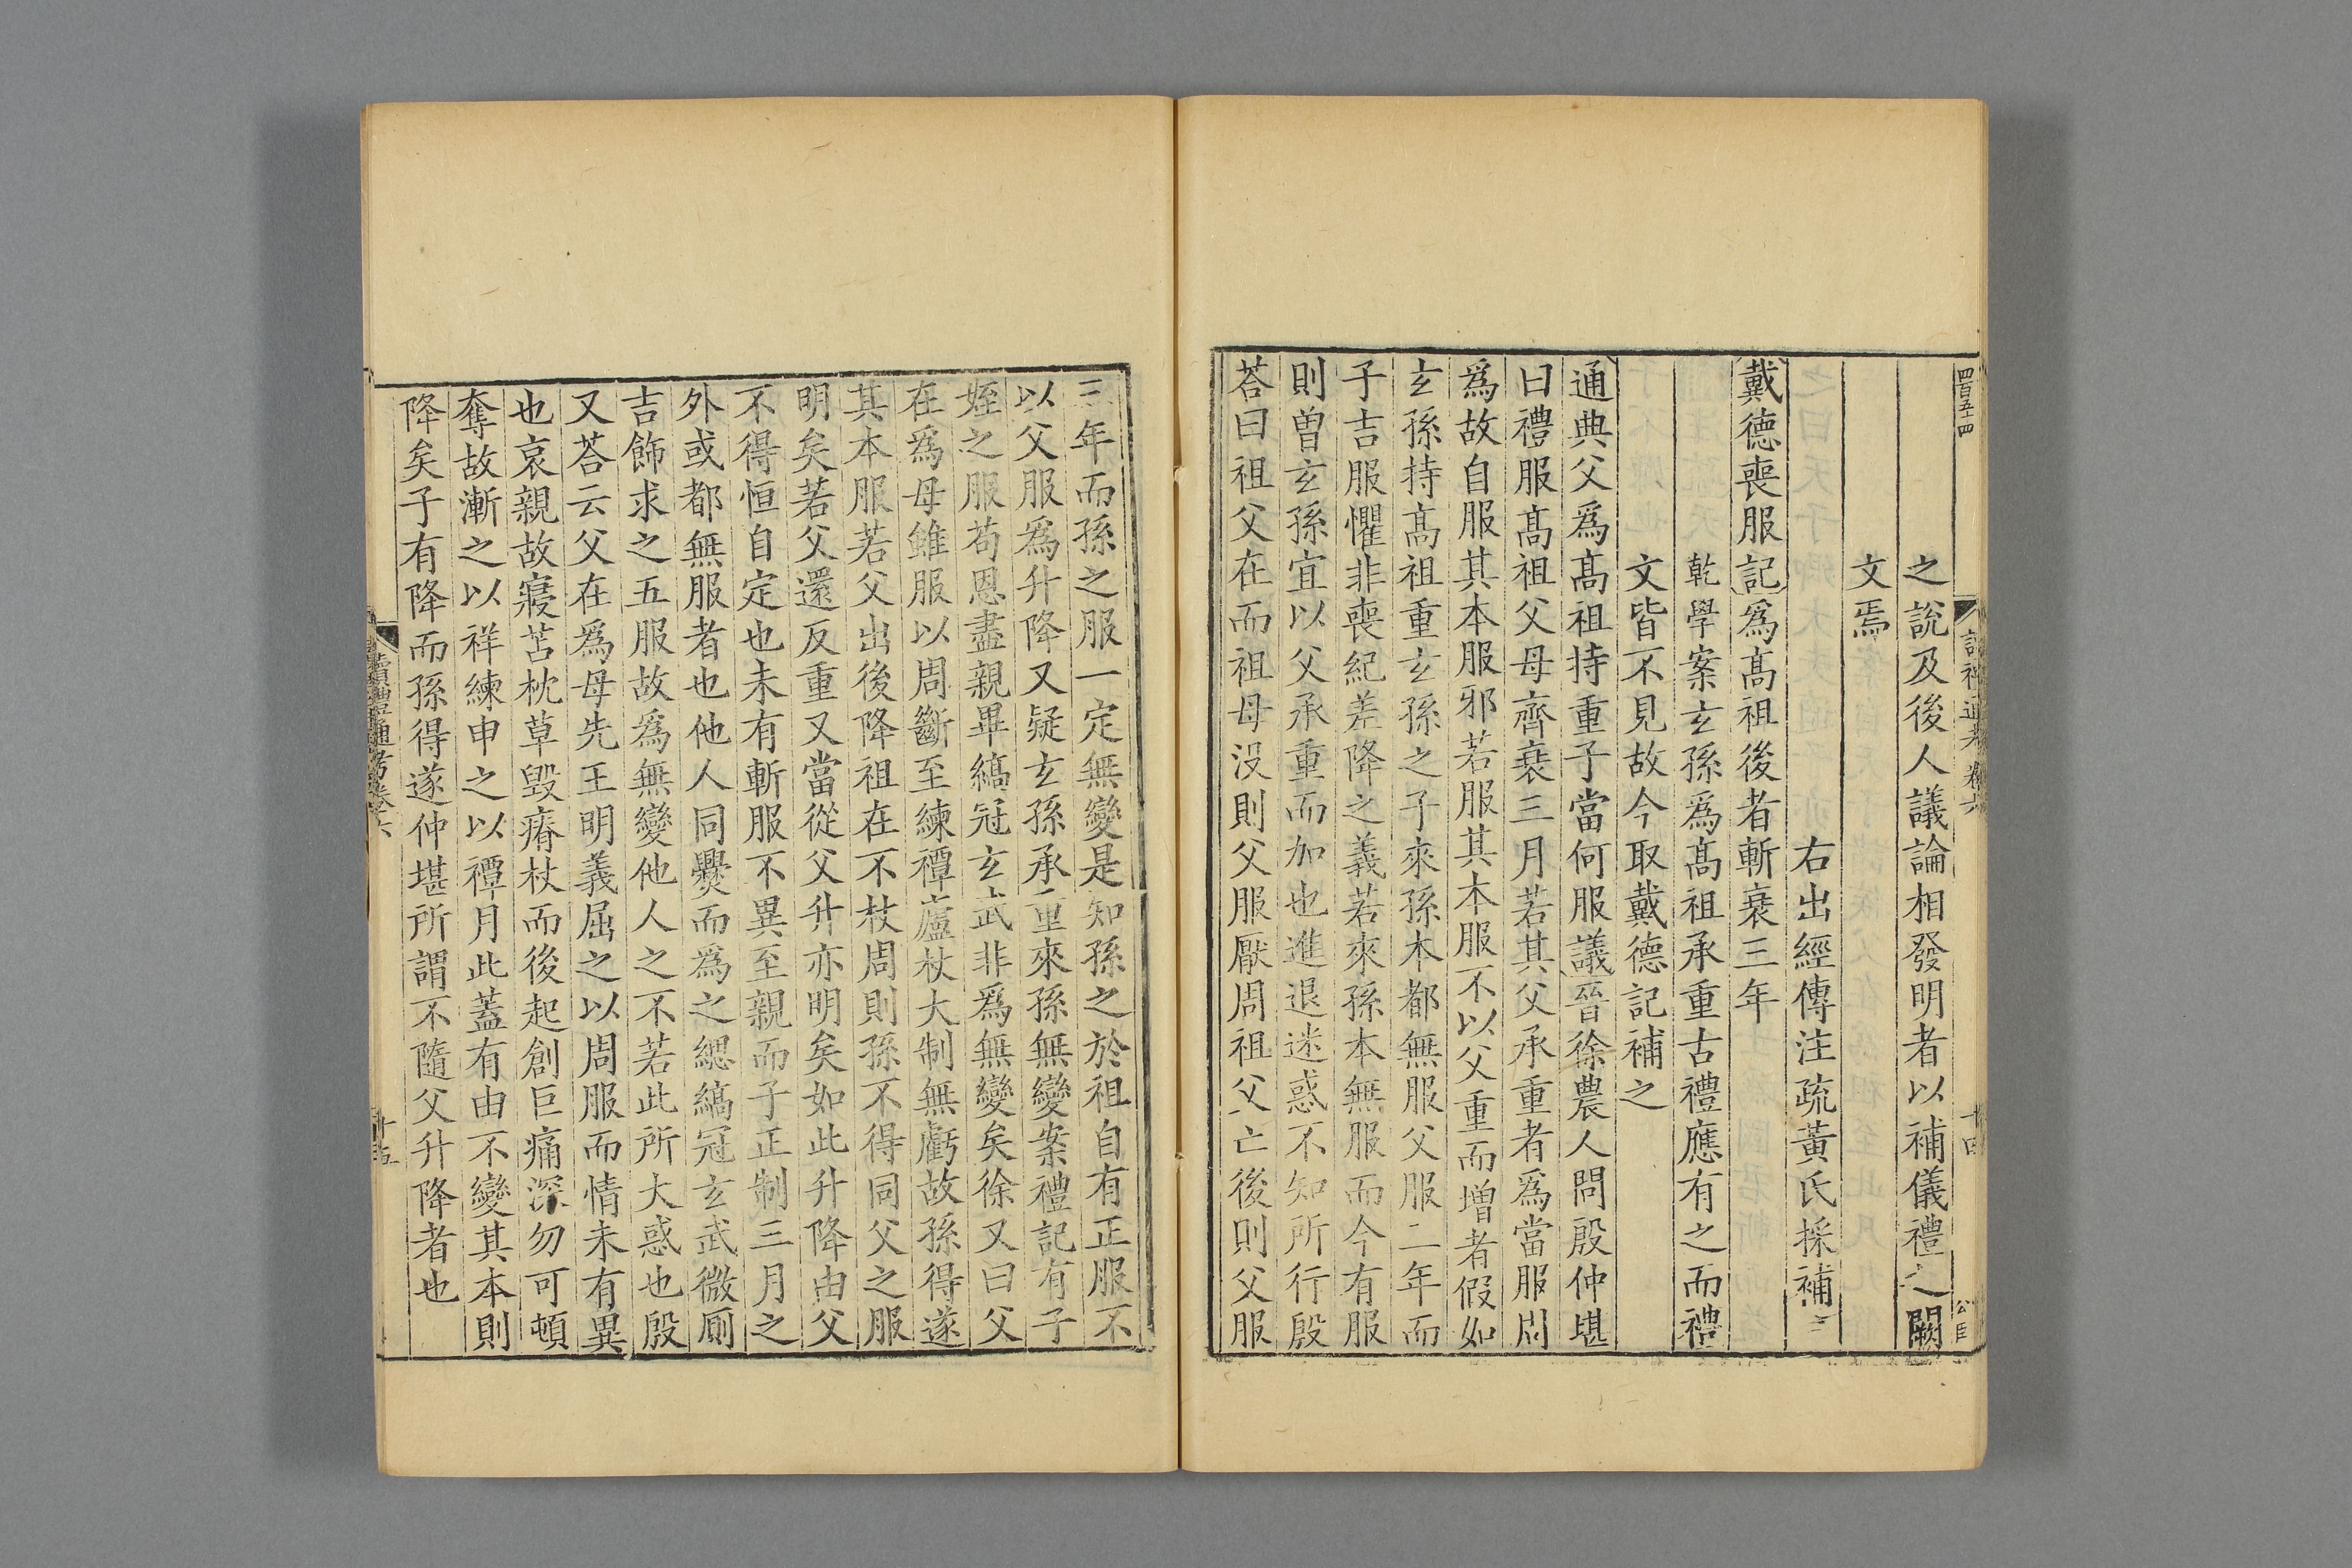 四百五十四
讀禮通考 卷六
十四
公臣
之說及後人議論相發明者以補儀禮之闕
文焉
右出經傳注疏黃氏採補
戴德喪服記爲高祖後者斬衰三年
乾學案玄孫爲高祖承重古禮應有之而禮
文皆不見故今取戴德記補之
通典父爲高祖持重子當何服議晉徐農人問殷仲堪
曰禮服高祖父母齊衰三月若其父承重者爲當服周
爲故自服其本服邪若服其本服不以父重而增者假如
玄孫持高祖重玄孫之子來孫本都無服父服二年而
子吉服懼非喪紀差降之義若來孫本無服而今有服
則曾玄孫宜以父承重而加也進退迷惑不知所行殷
荅曰祖父在而祖母没則父服厭周祖父亡後則父服
三年而孫之服一定無變是知孫之於祖自有正服不
以父服爲升降又疑玄孫承重來孫無變案禮記有子
姪之服苟恩盡親畢縞冠玄武非爲無變矣徐又曰父
在爲母雖服以周斷至練禫廬杖大制無虧故孫得遂
其本服若父出後降祖在不杖周則孫不得同父之服
明矣若父還反重又當從父升亦明矣如此升降由父
不得恒自定也未有斬服不異至親而子正制三月之
外或都無服者也他人同爨而爲之緦縞冠玄武微厠
吉飾求之五服故爲無變他人之不若此所大惑也殷
又荅云父在爲母先王明義屈之以周服而情未有異
也哀親故寢苫枕草毁瘠杖而後起創巨痛深勿可頓
奪故漸之以祥練申之以禫月此蓋有由不變其本則
降矣子有降而孫得遂仲堪所謂不隨父升降者也
讀禮通考卷六
十五